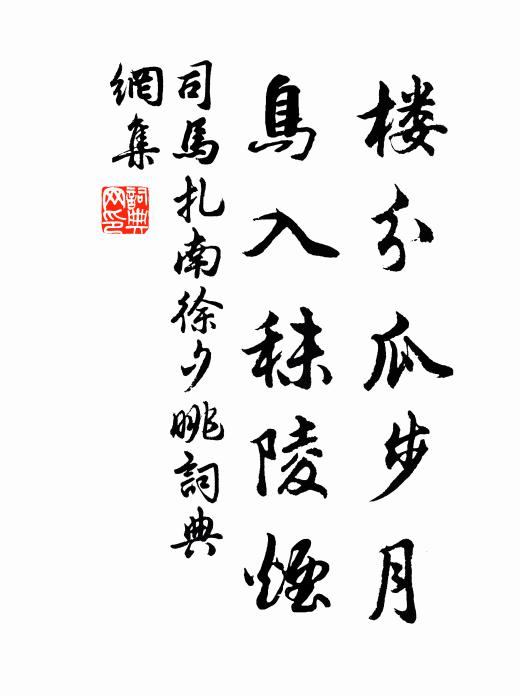 楼分瓜步月
鳥入秣陵煙
司馬扎南徐夕眺詞典
網集
詞典網印